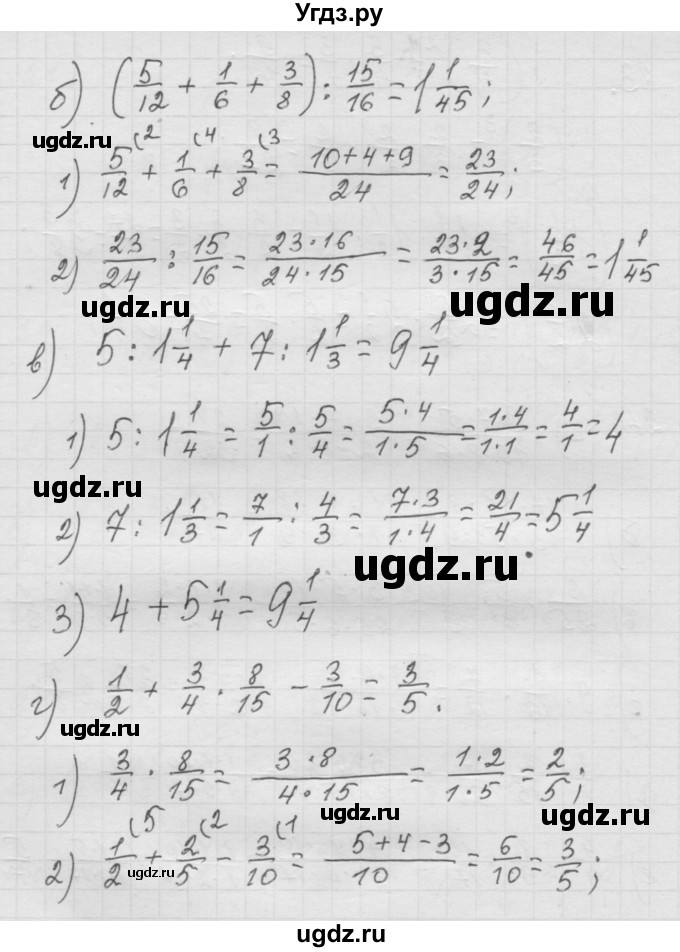 Угдз.ру
б) (5/12 + 1/6 + 3/8) : 15/16 = 1 1/45;
ugdz.ru
1) 5/12 (2 + 1/6 (4 + 3/8 (3 = 10+4+9/24 = 23/24;
2) 23/24 : 15/16 = 23·16/24·15 = 23·2/3·15 = 46/45 = 1 1/45
ugdz.ru
ugdz.ru
в) 5 : 1 1/4 + 7 : 1 1/3 = 9 1/4
1) 5 : 1 1/4 = 5/1 : 5/4 = 5·4/1·5 = 1·4/1·1 = 4/1 = 4
ugdz.ru
2) 7 : 1 1/3 = 7/1 : 4/3 = 7·3/1·4 = 21/4 = 5 1/4
ugdz.ru
3) 4 + 5 1/4 = 9 1/4
г) 1/2 + 3/4 · 8/15 - 3/10 = 3/5.
ugdz.ru
1) 3/4 · 8/15 = 3·8/4·15 = 1·2/1·5 = 2/5;
ugdz.ru
ugdz.ru
2) 1/2 (5 + 2/5 (2 - 3/10 (1 = 5+4-3/10 = 6/10 = 3/5;
ugdz.ru
ugdz.ru